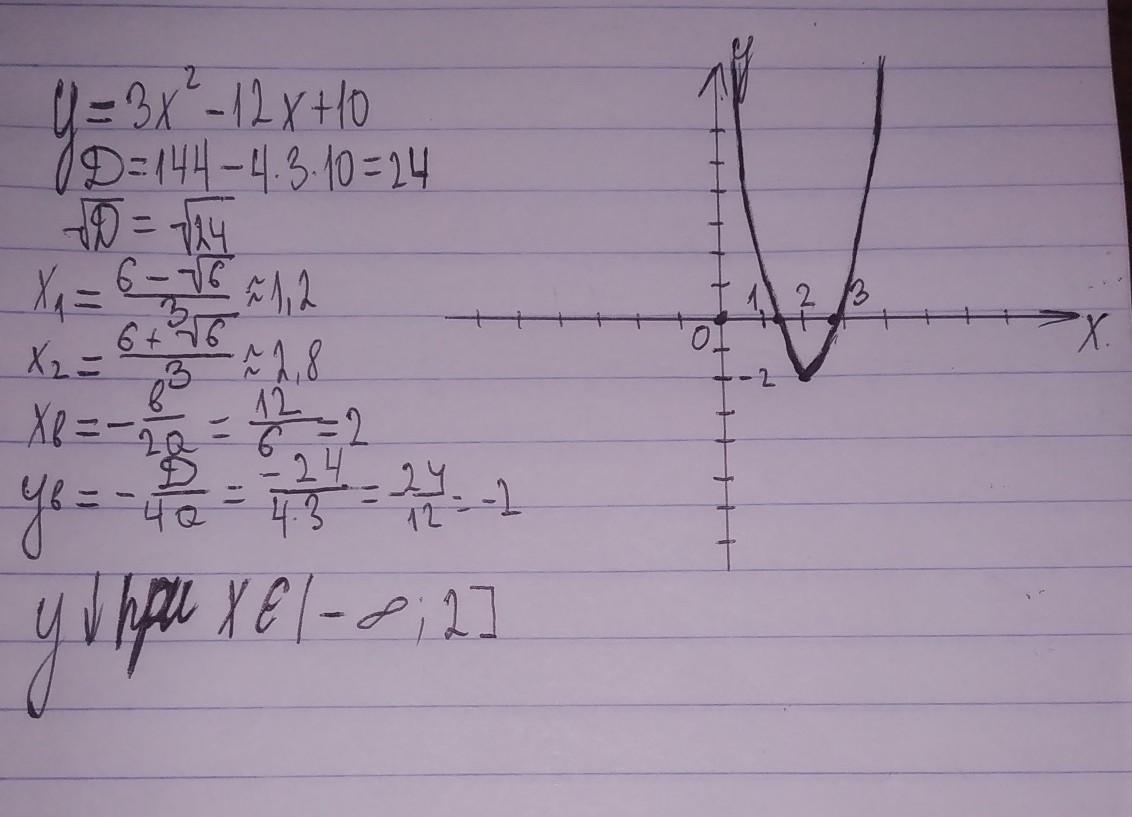 y = 3x² - 12x + 10
D = 144 - 4 · 3 · 10 = 24
√D = √24
x₁ = (6 - √6)/3 ≈ 1,2
x₂ = (6 + √6)/3 ≈ 2,8
xв = - в/2a = 12/6 = 2
yв = - D/4a = -24/4·3 = 24/12 = -2
y ↓ при x ∈ (-∞; 2]
y
1 2 3
0
x
-2